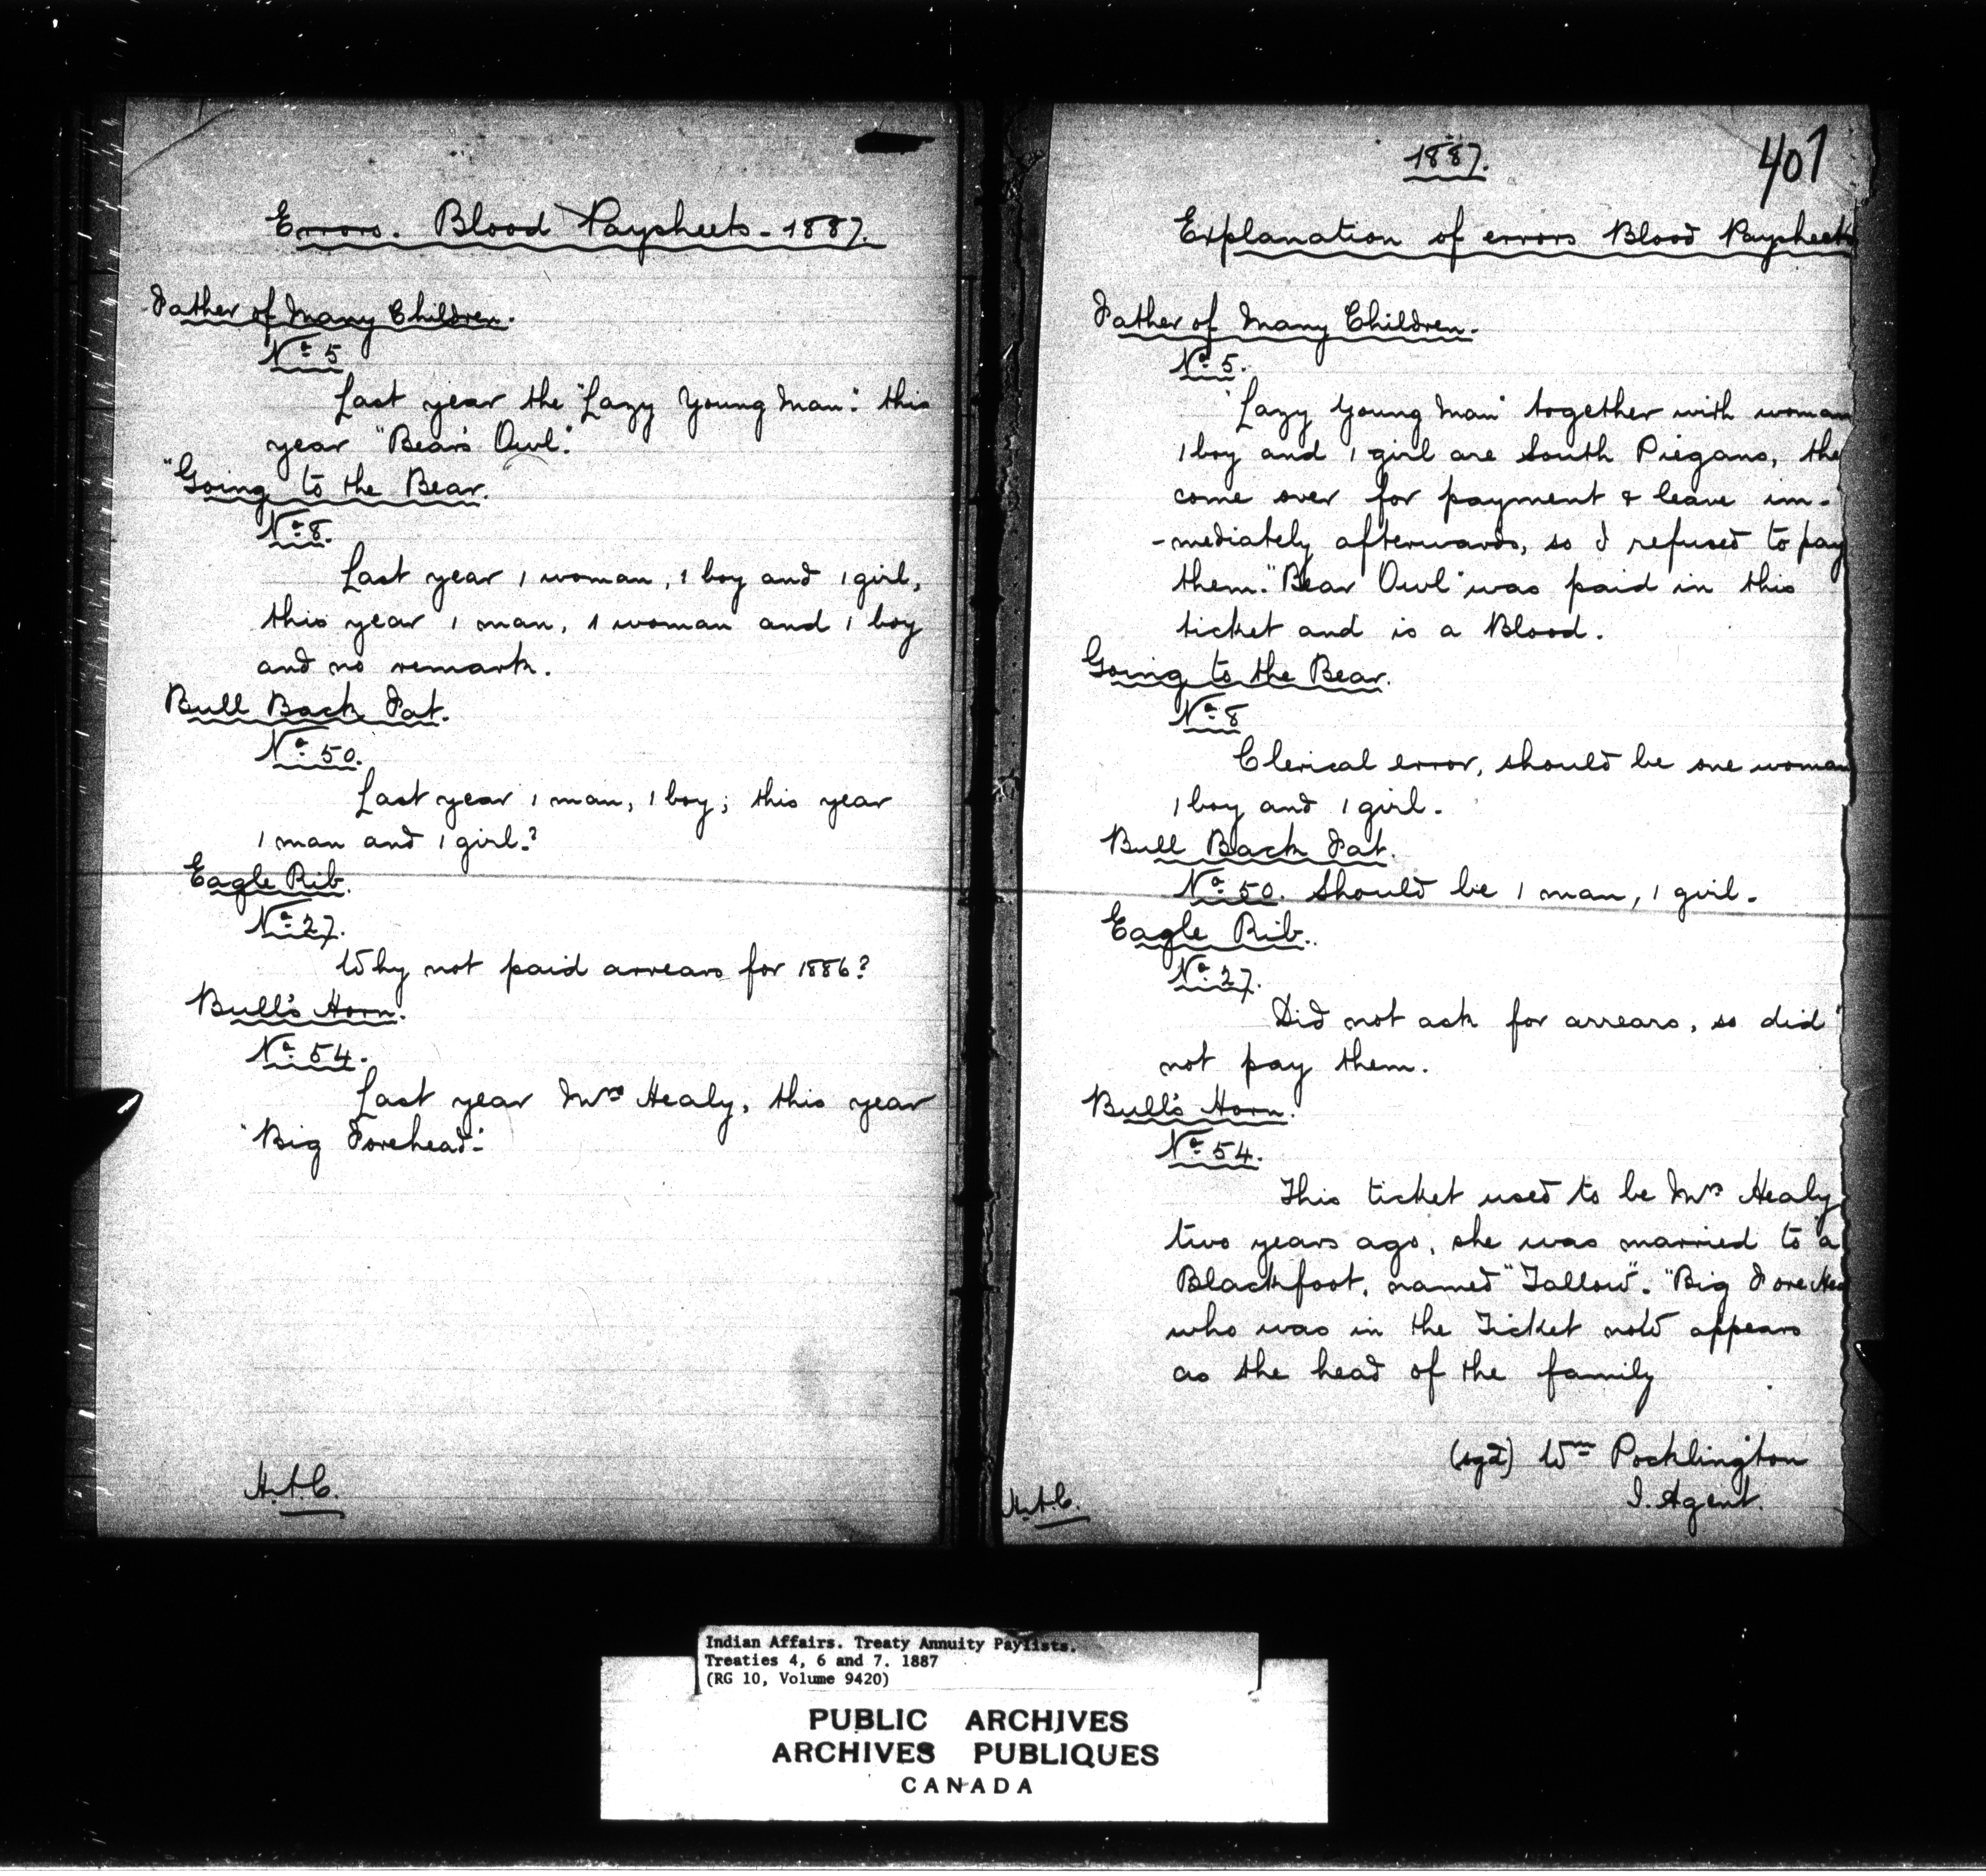 Errors. Blood Paysheets - 1887.
Father of Many Children.
No 5
Last year the "Lazy Young Man". this
year "Bear's Owl".
"Going to the Bear.
No 8.
Last year 1 woman, 1 boy and 1 girl,
this year 1 man, 1 woman and 1 boy
and no remark.
Bull Back Fat.
No 50.
Last year 1 man, 1 boy; this year
1 man and 1 girl?
Eagle Rib.
No 27.
Why not paid arrears for 1886?
Bull's Horn.
No 54.
Last year Mrs Healy, this year
"Big Forehead".
1887.
407
Explanation of errors Blood Paysheets
Father of Many Children.
No 5.
"Lazy Young Man" together with woman
1 boy and 1 girl are South Piegans, the
come over for payment & leave im-
-mediately afterwards, so I refused to pay
them. "Bear Owl" was paid in this
ticket and is a Blood.
Going to the Bear.
No 8
Clerical error, should be one woman
1 boy and 1 girl.
Bull Back Fat.
No 50. Should be 1 man, 1 girl.
Eagle Rib.
No 27.
Did not ask for arrears, so did
not pay them.
Bull's Horn.
No 54.
This ticket used to be Mrs Healy
two years ago, she was married to a
Blackfoot, named "Tallow". "Big Fore Hea
who was in the Ticket now appears
as the head of the family
(sgd) Wm Pocklington
I. Agent.
Indian Affairs. Treaty Annuity Paylists.
Treaties 4, 6 and 7. 1887
(RG 10, Volume 9420)
PUBLIC ARCHIVES
ARCHIVES PUBLIQUES
CANADA